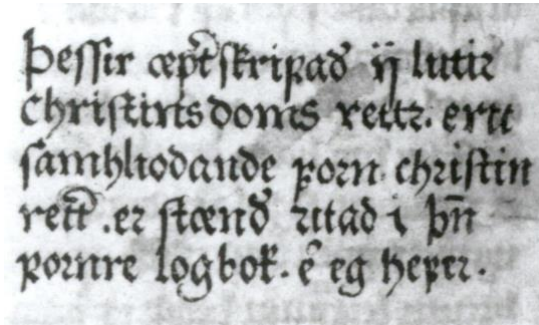 Þeſſir æꝼt͛ſkriꝼað͛ ij lutir
chriſtinsdoms rettr. eru
ſamhliodande ꝼorn chriſtin
rett .er ſtænd͛ ritad i þn̅
ꝼornre logbok. e͛ eg heꝼer.